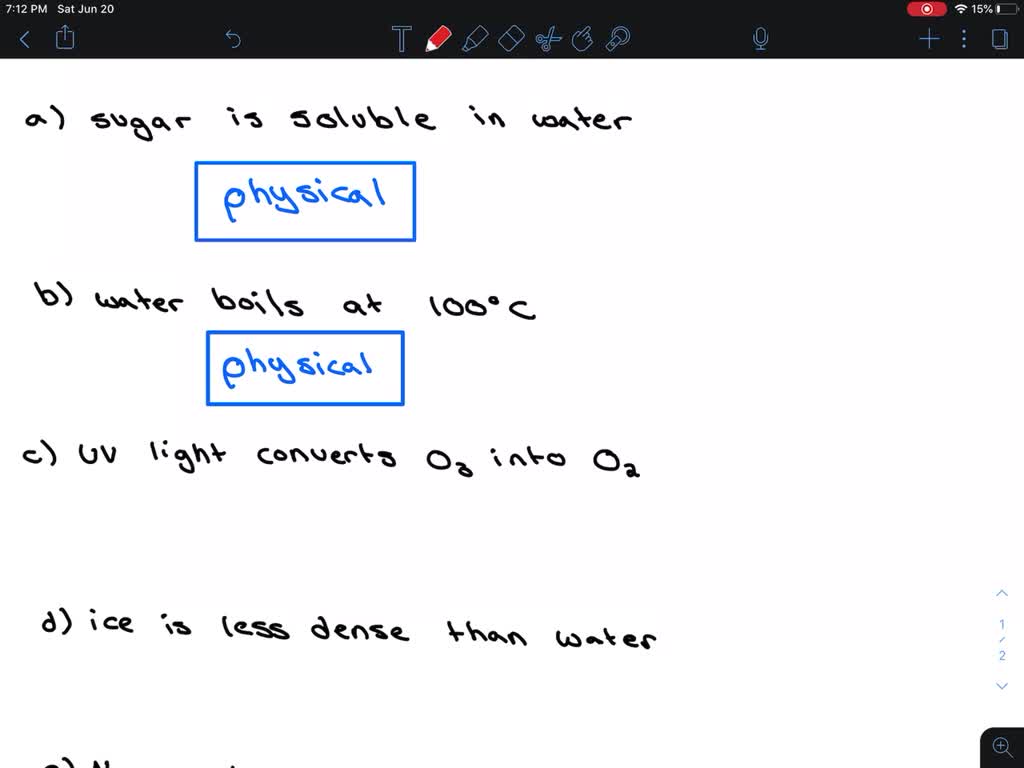 7:12 PM Sat Jun 20
15%
a) sugar is soluble in water
physical
b) water boils at 100°C
physical
c) UV light converts O₃ into O₂
1
/
2
d) ice is less dense than water